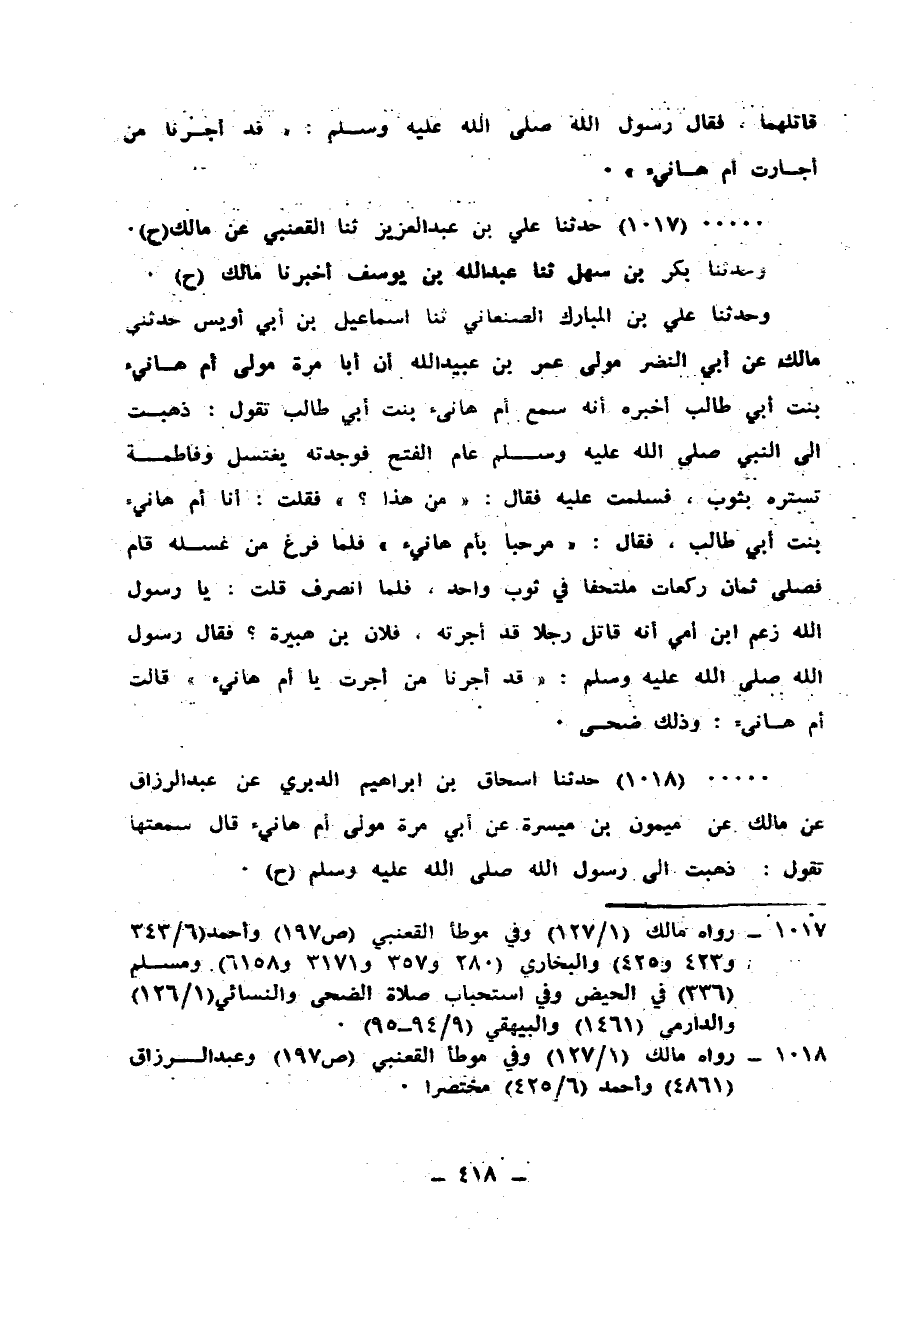 قاتلهما ، فقال رسول الله صلى الله عليه وسـلم : « قد أجـرنا من
أجـارت أم هـانيء » ٠
٠٠٠٠٠ (١٠١٧) حدثنا علي بن عبدالعزيز ثنا القعنبي عن مالك(ح)٠
وحدثنا بكر بن سهل ثنا عبدالله بن يوسف أخبرنا مالك (ح) ٠
وحدثنا علي بن المبارك الصنعاني ثنا اسماعيل بن أبي أويس حدثني
مالك عن أبي النضر مولى عمر بن عبيدالله أن أبا مرة مولى أم هـانيء
بنت أبي طالب أخبره أنه سمع أم هانىء بنت أبي طالب تقول : ذهبـت
الى النبي صلى الله عليه وسـلم عام الفتح فوجدته يغتسل وفاطمـة
تستره بثوب ، فسلمت عليه فقال : « من هذا ؟ » فقلت : أنا أم هانيء
بنت أبي طالب ، فقال : « مرحبا بأم هانيء » فلما فرغ من غسـله قام
فصلى ثمان ركعات ملتحفا في ثوب واحد ، فلما انصرف قلت : يا رسول
الله زعم ابن أمي أنه قاتل رجلا قد أجرته ، فلان بن هبيرة ؟ فقال رسول
الله صلى الله عليه وسلم : « قد أجرنا من أجرت يا أم هانيء » قالت
أم هـانىء : وذلك ضحـى ٠
٠٠٠٠٠ (١٠١٨) حدثنا اسحاق بن ابراهيم الدبري عن عبدالرزاق
عن مالك عن ميمون بن ميسرة عن أبي مرة مولى أم هانيء قال سمعتها
تقول : ذهبت الى رسول الله صلى الله عليه وسلم (ح) ٠
١٠١٧ ـ رواه مالك (١/١٢٧) وفي موطأ القعنبي (ص١٩٧) وأحمد(٦/٣٤٣
و٤٢٣ و٤٢٥) والبخاري (٢٨٠ و٣٥٧ و٣١٧١ و٦١٥٨) ومسـلم
(٣٣٦) في الحيض وفي استحباب صلاة الضحى والنسائي(١/١٢٦)
والدارمي (١٤٦١) والبيهقي (٩/٩٤ـ٩٥) ٠
١٠١٨ ـ رواه مالك (١/١٢٧) وفي موطأ القعنبي (ص١٩٧) وعبدالـرزاق
(٤٨٦١) وأحمد (٦/٤٢٥) مختصرا ٠
ـ ٤١٨ ـ